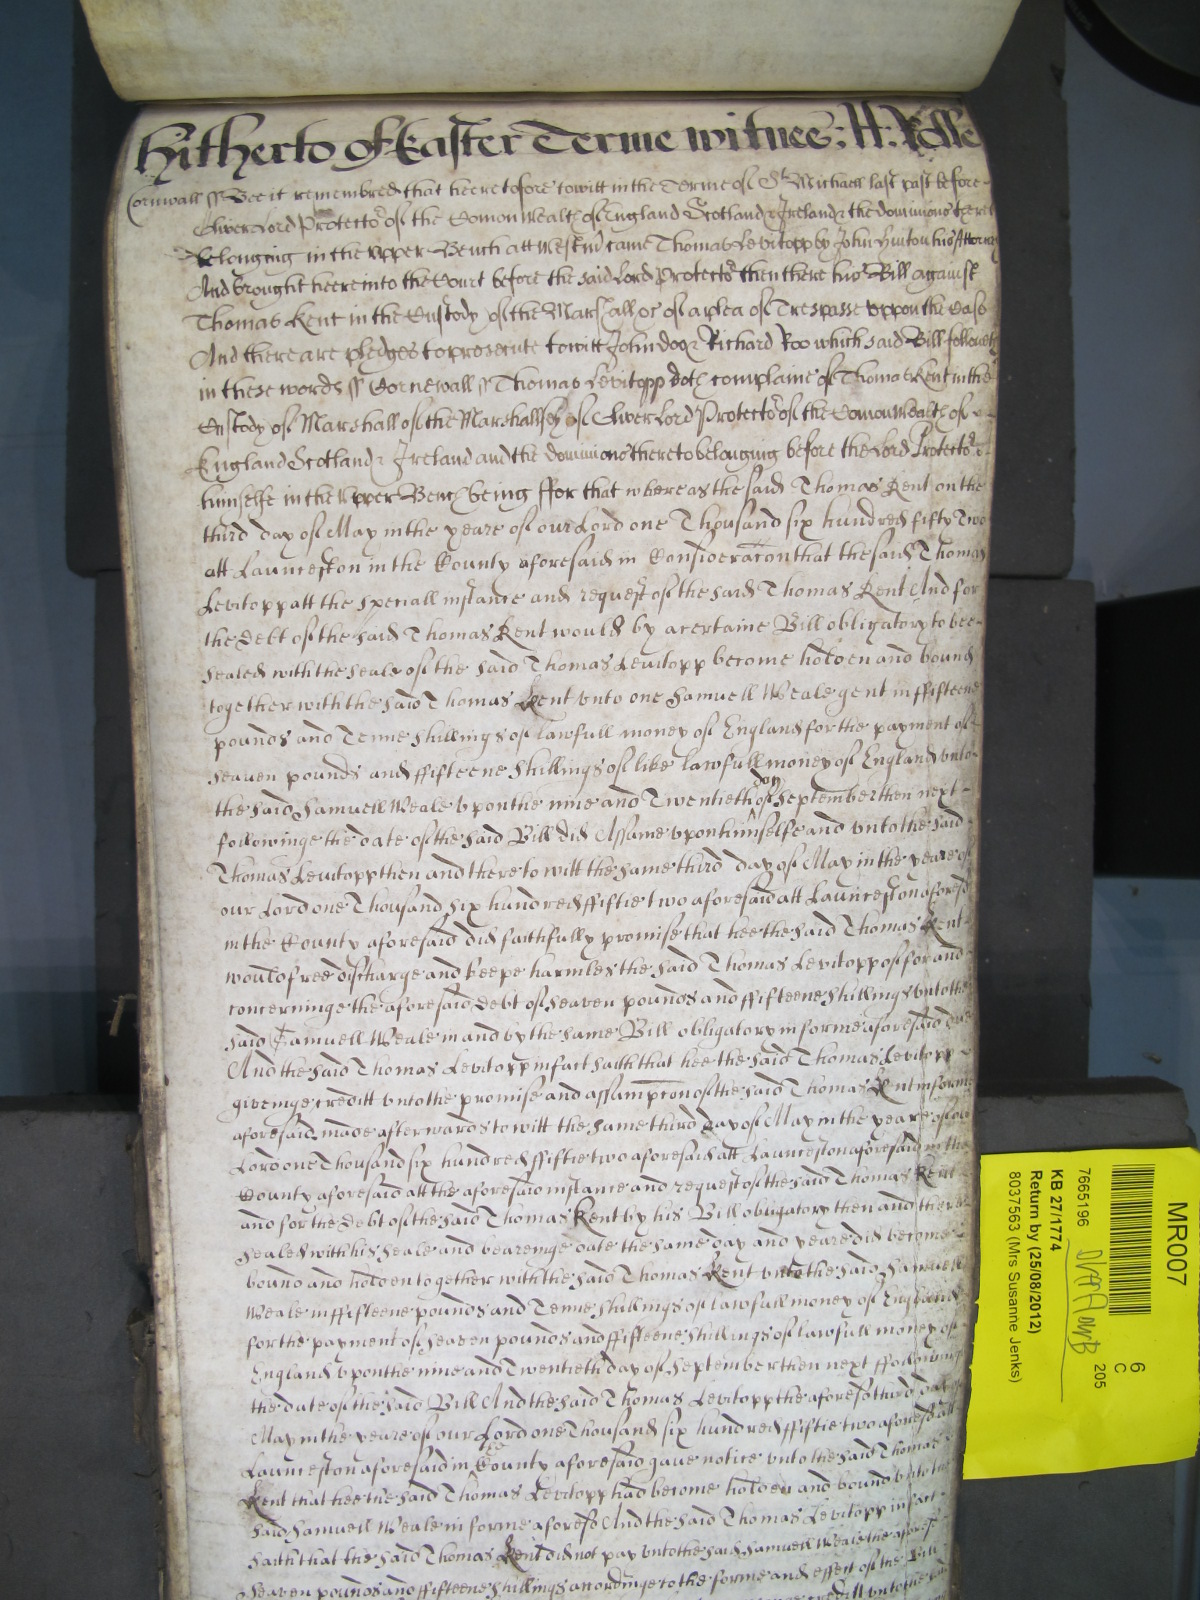 hitherto of Easter Terme witnes: H: Rolle
Cornwall ss Bee it remembred that heeretofore towitt in the Terme of St Michaell last past before
Oliver Lord Protector of the Comonwealth of England Scotland & Ireland & the dominions thereto
belonging in the upper Bench att Westmr came Thomas Levitopp by John Hutton his Attorney
And brought heere into the Court before the said Lord Protector then there his Bill against
Thomas Kent in the Custody of the Marshall &c of a plea of Trespasse uppon the Case
And there are pledges to prosecute towitt John doo & Richard Roo which said Bill followeth
in these words ss Cornewall ss Thomas Levitopp doth complaine of Thomas Kent in the
Custody of Marshall of the Marshallsey of Oliver Lord Protector of the Comonwealth of
England Scotland & Ireland and the dominions thereto belonging before the Lord Protector
himselfe in the Upper Bench being ffor that whereas the said Thomas Kent on the
third day of May in the yeare of our Lord one Thousand six hundred fifty Two
att Launceston in the County aforesaid in Consideracon that the said Thomas
Levitopp att the speciall instance and request of the said Thomas Kent And for
the Debt of the said Thomas Kent would by a certaine Bill obligatory to bee
sealed with the seale of the said Thomas Levitopp become holden and bound
together with the said Thomas Kent unto one Samuell Weale gent in ffifteene
pounds and Tenne shillings of lawfull money of England for the payment of
seaven pounds and ffifteene shillings of like lawfull money of England unto
the said Samuell Weale upon the nine and Twentieth day of September then next
followinge the date of the said Bill did Assume upon himselfe and unto the said
Thomas Levitopp then and there to witt the same third day of May in the yeare of
our Lord one Thousand six hundred ffiftie two aforesaid att Launceston aforesd
in the County aforesaid did faithfully promise that hee the said Thomas Kent
would free discharge and keepe harmles the said Thomas Levitopp of for and
concerninge the aforesaid Debt of seaven pounds and ffifteene shillings unto the
said Samuell Weale in and by the same Bill obligatory in forme aforesaid due
And the said Thomas Levitopp in fact saith that hee the said Thomas Levitopp
giveinge creditt unto the promise and assumpcon of the said Thomas Kent in forme
aforesaid made afterwards to witt the same third day of May in the yeare of our
Lord one Thousand six hundred ffiftie two aforesaid att Launceston aforesaid in the
County aforesaid att the aforesaid instance and request of the said Thomas Kent
and for the Debt of the said Thomas Kent by his Bill obligatory then and there
sealed with his seale and beareinge date the same day and yeare did become
bound and holden together with the said Thomas Kent unto the said Samuell
Weale in ffifteene pounds and Tenne shillings of lawfull money of England
for the payment of seaven pounds and ffifteene shillings of lawfull money of
England upon the nine and Twentieth day of September then next ffollowinge
the date of the said Bill And the said Thomas Levitopp the aforesd third day of
May in the yeare of our Lord one Thousand six hundred ffiftie two aforesd att
Launceston aforesaid in the County aforesaid gave notice unto the said Thomas
Kent that hee the said Thomas Levitopp had become holden and bound unto the
said Samuell Weale in forme aforesd And the said Thomas Levitopp in fact
saith that the said Thomas Kent did not pay unto the said Samuell Weale the aforesd
seaven pounds and ffifteene shillings accordinge to the forme and effect of the Bill
creditt unto the
MR007
6
C
205
7665196
KB 27/1774
Return by (25/08/2012)
8037563 (Mrs Susanne Jenks)